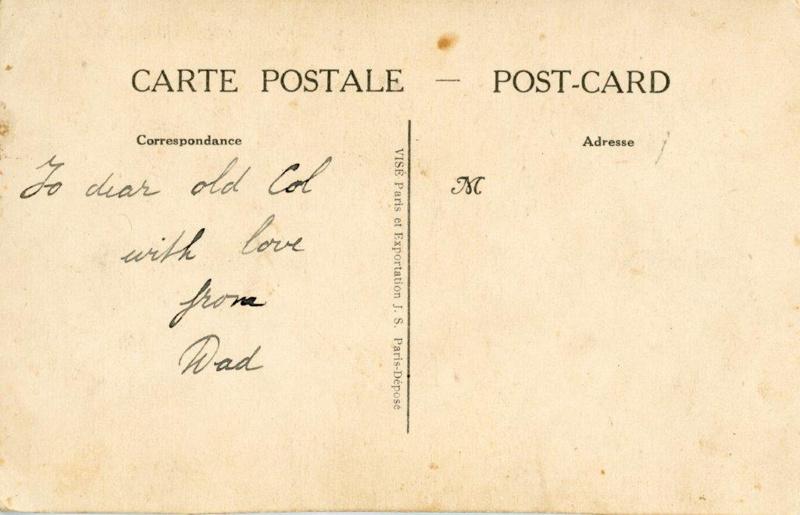 CARTE POSTALE — POST-CARD
Correspondance
To dear old Col
with love
from
Dad
VISÉ Paris et Exportation J. S. Paris-Déposé
Adresse
M